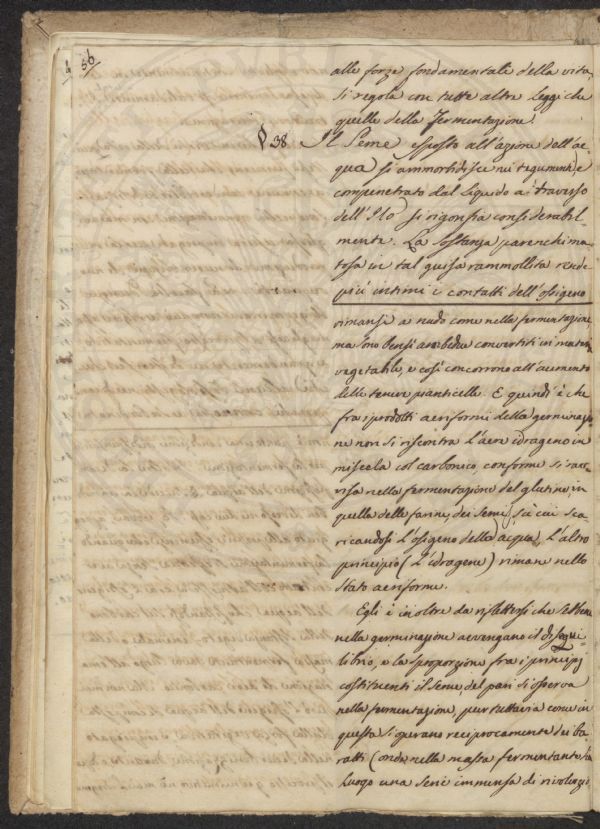 56
alle forze fondamentali della vita,
si regola con tutte altre leggi che
quelle della fermentazione.
§ 38. Il Seme esposto all'azione dell'ac-
qua si ammorbidisce nei tegumenti, e
compenetrato dal liquido a traverso
dell'Ilo si rigonfia considerabil-
mente. La sostanza parenchima-
tosa in tal guisa rammollita rende
più intimi i contatti dell'ossigeno
rimansi a nudo come nella fermentazione,
ma sono bensì ambedue convertiti in materia
vegetabile, e così concorrono all'aumento
delle tenere pianticelle. E quindi è che
fra i prodotti aeriformi della germinazio-
ne non si riscontra l'aere idrogeno in
miscela col carbonico, conforme si rav-
visa nella fermentazione del glutine in
quella delle farine, dei semi, su cui sca-
ricandosi l'ossigeno della acqua, l'altro
principio (l'idrogene) rimane nello
stato aeriforme.
Egli è inoltre da riflettersi che sebbene
nella germinazione avvengano il disequi-
librio, e la sproporzione fra i principj
costituenti il seme, del pari si osserva
nella fermentazione, pur tuttavia come in
questa si operano reciprocamente dei ba-
ratti (onde nella massa fermentante ha
luogo una serie immensa di rivoluzio